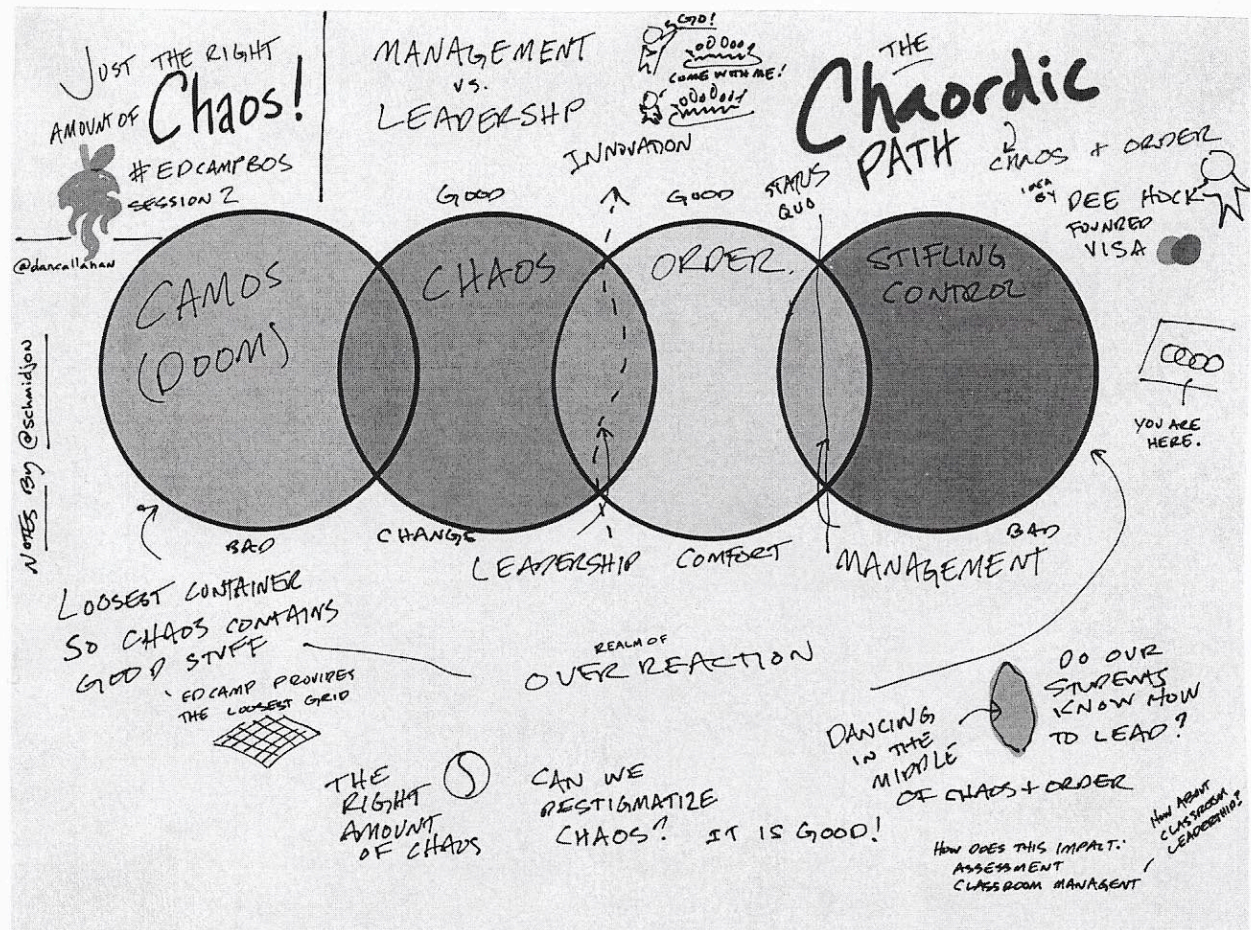 JUST THE RIGHT
AMOUNT OF Chaos!
#EDCAMPBOS
SESSION 2
@dancallahan
NOTES By @schmidjon
MANAGEMENT
vs.
LEADERSHP
GO!
COME WITH ME!
INNOVATION
THE
Chaordic
PATH
CHAOS + ORDER
IDEA
BY
DEE HOCK
FOUNDED
VISA
GOOD
GOOD
STATUS
QUO
CAMOS
(DOOM)
CHAOS
ORDER.
STIFLING
CONTROL
YOU ARE
HERE.
BAD
CHANGE
LEADERSHIP
COMFORT
MANAGEMENT
BAD
LOOSEST CONTAINER
SO CHAOS CONTAINS
GOOD STUFF
EDCAMP PROVIDES
THE LOOSEST GRID
REALM OF
OVER REACTION
THE
RIGHT
AMOUNT
OF CHAOS
CAN WE
DESTIGMATIZE
CHAOS? IT IS GOOD!
DANCING
IN THE
MIDDLE
OF CHAOS + ORDER
DO OUR
STUDENTS
KNOW HOW
TO LEAD?
HOW DOES THIS IMPACT:
ASSESSMENT
CLASSROOM MANAGENT
HOW ABOUT
CLASSROOM
LEADERSHIP?